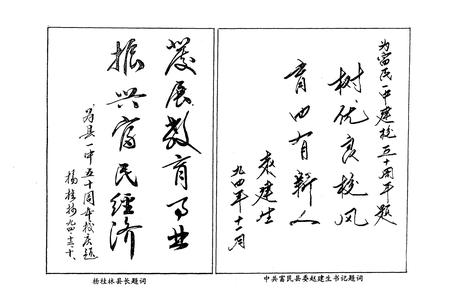 为富民一中建校五十周年题
树优良校风
育四有新人
赵建生
九四年十一月
中共富民县委赵建生书记题词
发展教育事业
振兴富民经济
为县一中五十周年校庆题
杨桂林九四
杨桂林县长题词